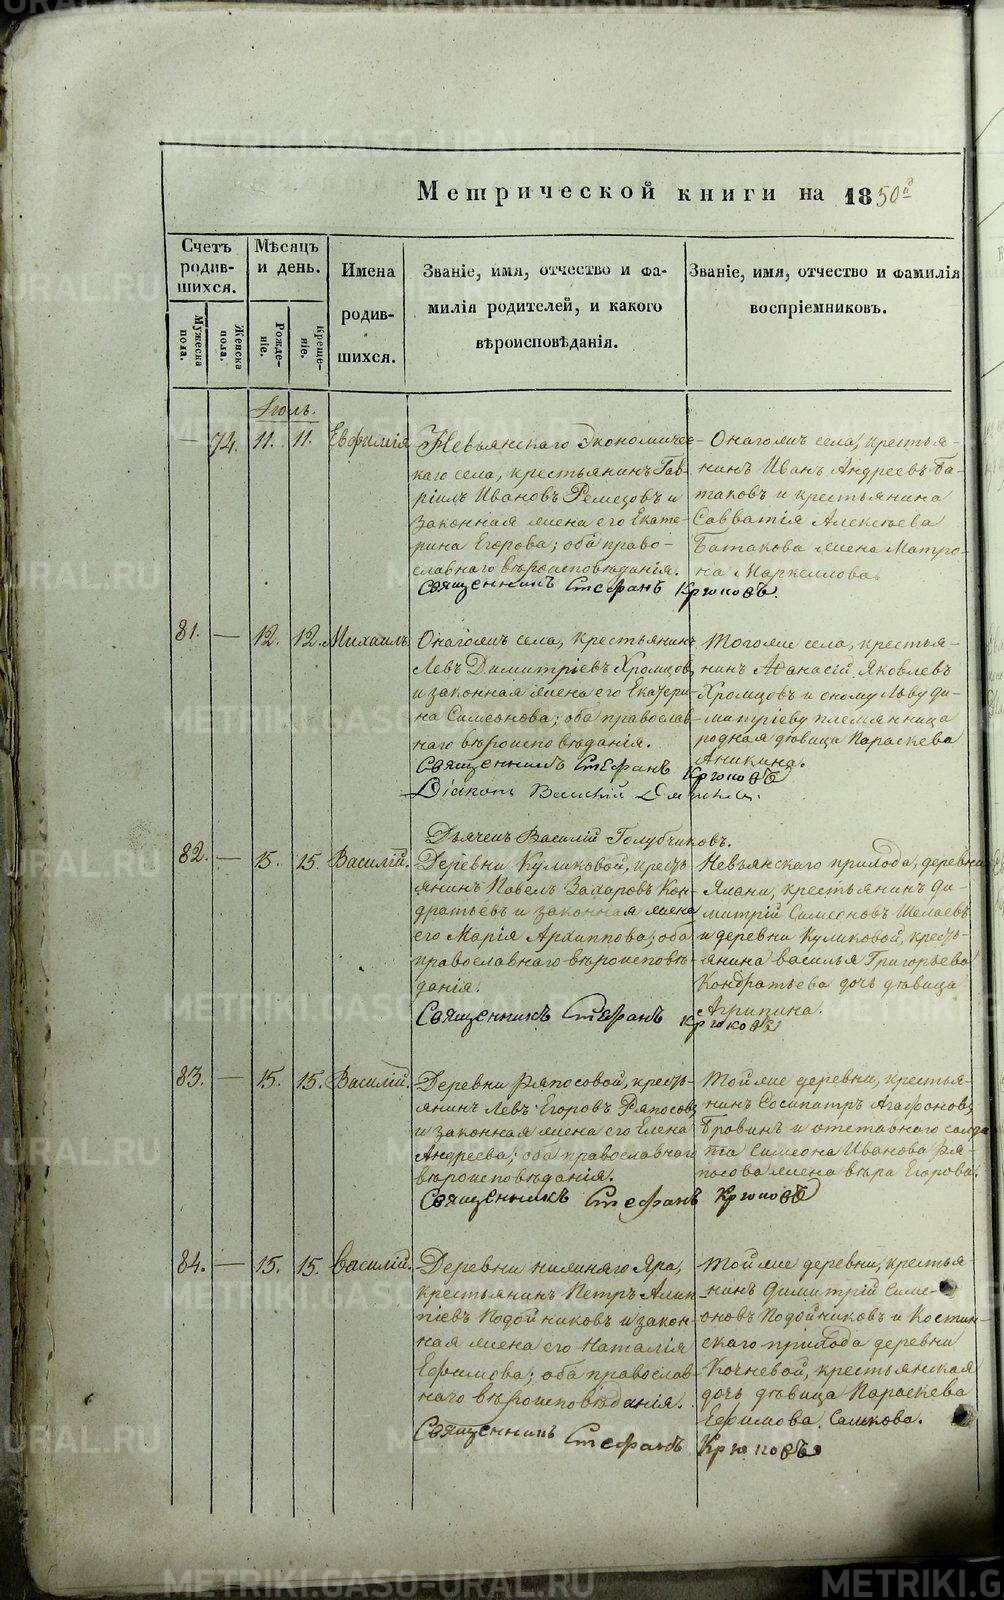 Метрической книги на 1850й
Счетъ родив-шихся.
Мужеска пола.
Женска пола.
Мѣсяцъ и день.
Рожде-ніе.
Креще-ніе.
Имена родив-шихся.
Званіе, имя, отчество и фа-
милія родителей, и какого
вѣроисповѣданія.
Званіе, имя, отчество и фамилія
воспріемниковъ.
Іюль.
— 74. 11. 11. Евфимія
Невьянскаго Экономичес-
каго села, крестьянинъ Гав-
ріилъ Ивановъ Ремезовъ и
законная жена его Екате-
рина Егорова; оба право-
славнаго вѣроисповѣданія.
Онагожъ села, крестья-
нинъ Иванъ Андреевъ Ба-
таковъ и крестьянина
Савватія Алексѣева
Батакова жена Матро-
на Маркеллова.
Священникъ Стефанъ Крюковъ.
81. — 12. 12. Михаилъ
Онагожъ села, крестьянинъ
Левъ Димитріевъ Хромцовъ
и законная жена его Екатери-
на Симеонова; оба православ-
наго вѣроисповѣданія.
Тогоже села, крестья-
нинъ Аѳанасій Яковлевъ
Хромцовъ и оному Льву Ди-
митріеву племянница
родная дѣвица Параскева
Аникина.
Священникъ Стефанъ Крюковъ
Діаконъ Василій
Дьячекъ Василій Голубчиковъ.
82. — 15. 15. Василій.
Деревни Куликовой, кресть-
янинъ Павелъ Захаровъ Кон-
дратьевъ и законная жена
его Марія Архиппова; оба
православнаго вѣроисповѣ-
данія.
Невьянскаго прихода, деревни
Ялани, крестьянинъ Ди-
митрій Симеоновъ Шелаевъ
и деревни Куликовой, кресть-
янина Василья Григорьева
Кондратьева дочь дѣвица
Агрипина.
Священникъ Стефанъ Крюковъ
83. — 15. 15. Василій.
Деревни Ряпосовой, кресть-
янинъ Левъ Егоровъ Ряпосовъ
и законная жена его Елена
Андреева; оба православнаго
вѣроисповѣданія.
Тойже деревни, крестья-
нинъ Сосипатръ Агафоновъ
Бровинъ и отставнаго солда-
та Симеона Иванова Ря-
посова жена Вѣра Егорова.
Священникъ Стефанъ Крюковъ
84. — 15. 15. Василій.
Деревни нижняго Яра,
крестьянинъ Петръ Алип-
піевъ Подойниковъ и закон-
ная жена его Наталія
Ефимова; оба православ-
наго вѣроисповѣданія.
Тойже деревни, крестья-
нинъ Димитрій Симе-
оновъ Подойниковъ и Костин-
скаго прихода деревни
Кочневой, крестьянская
дочь дѣвица Параскева
Ефимова Самкова.
Священникъ Стефанъ Крюковъ
METRIKI.GASO-URAL.RU